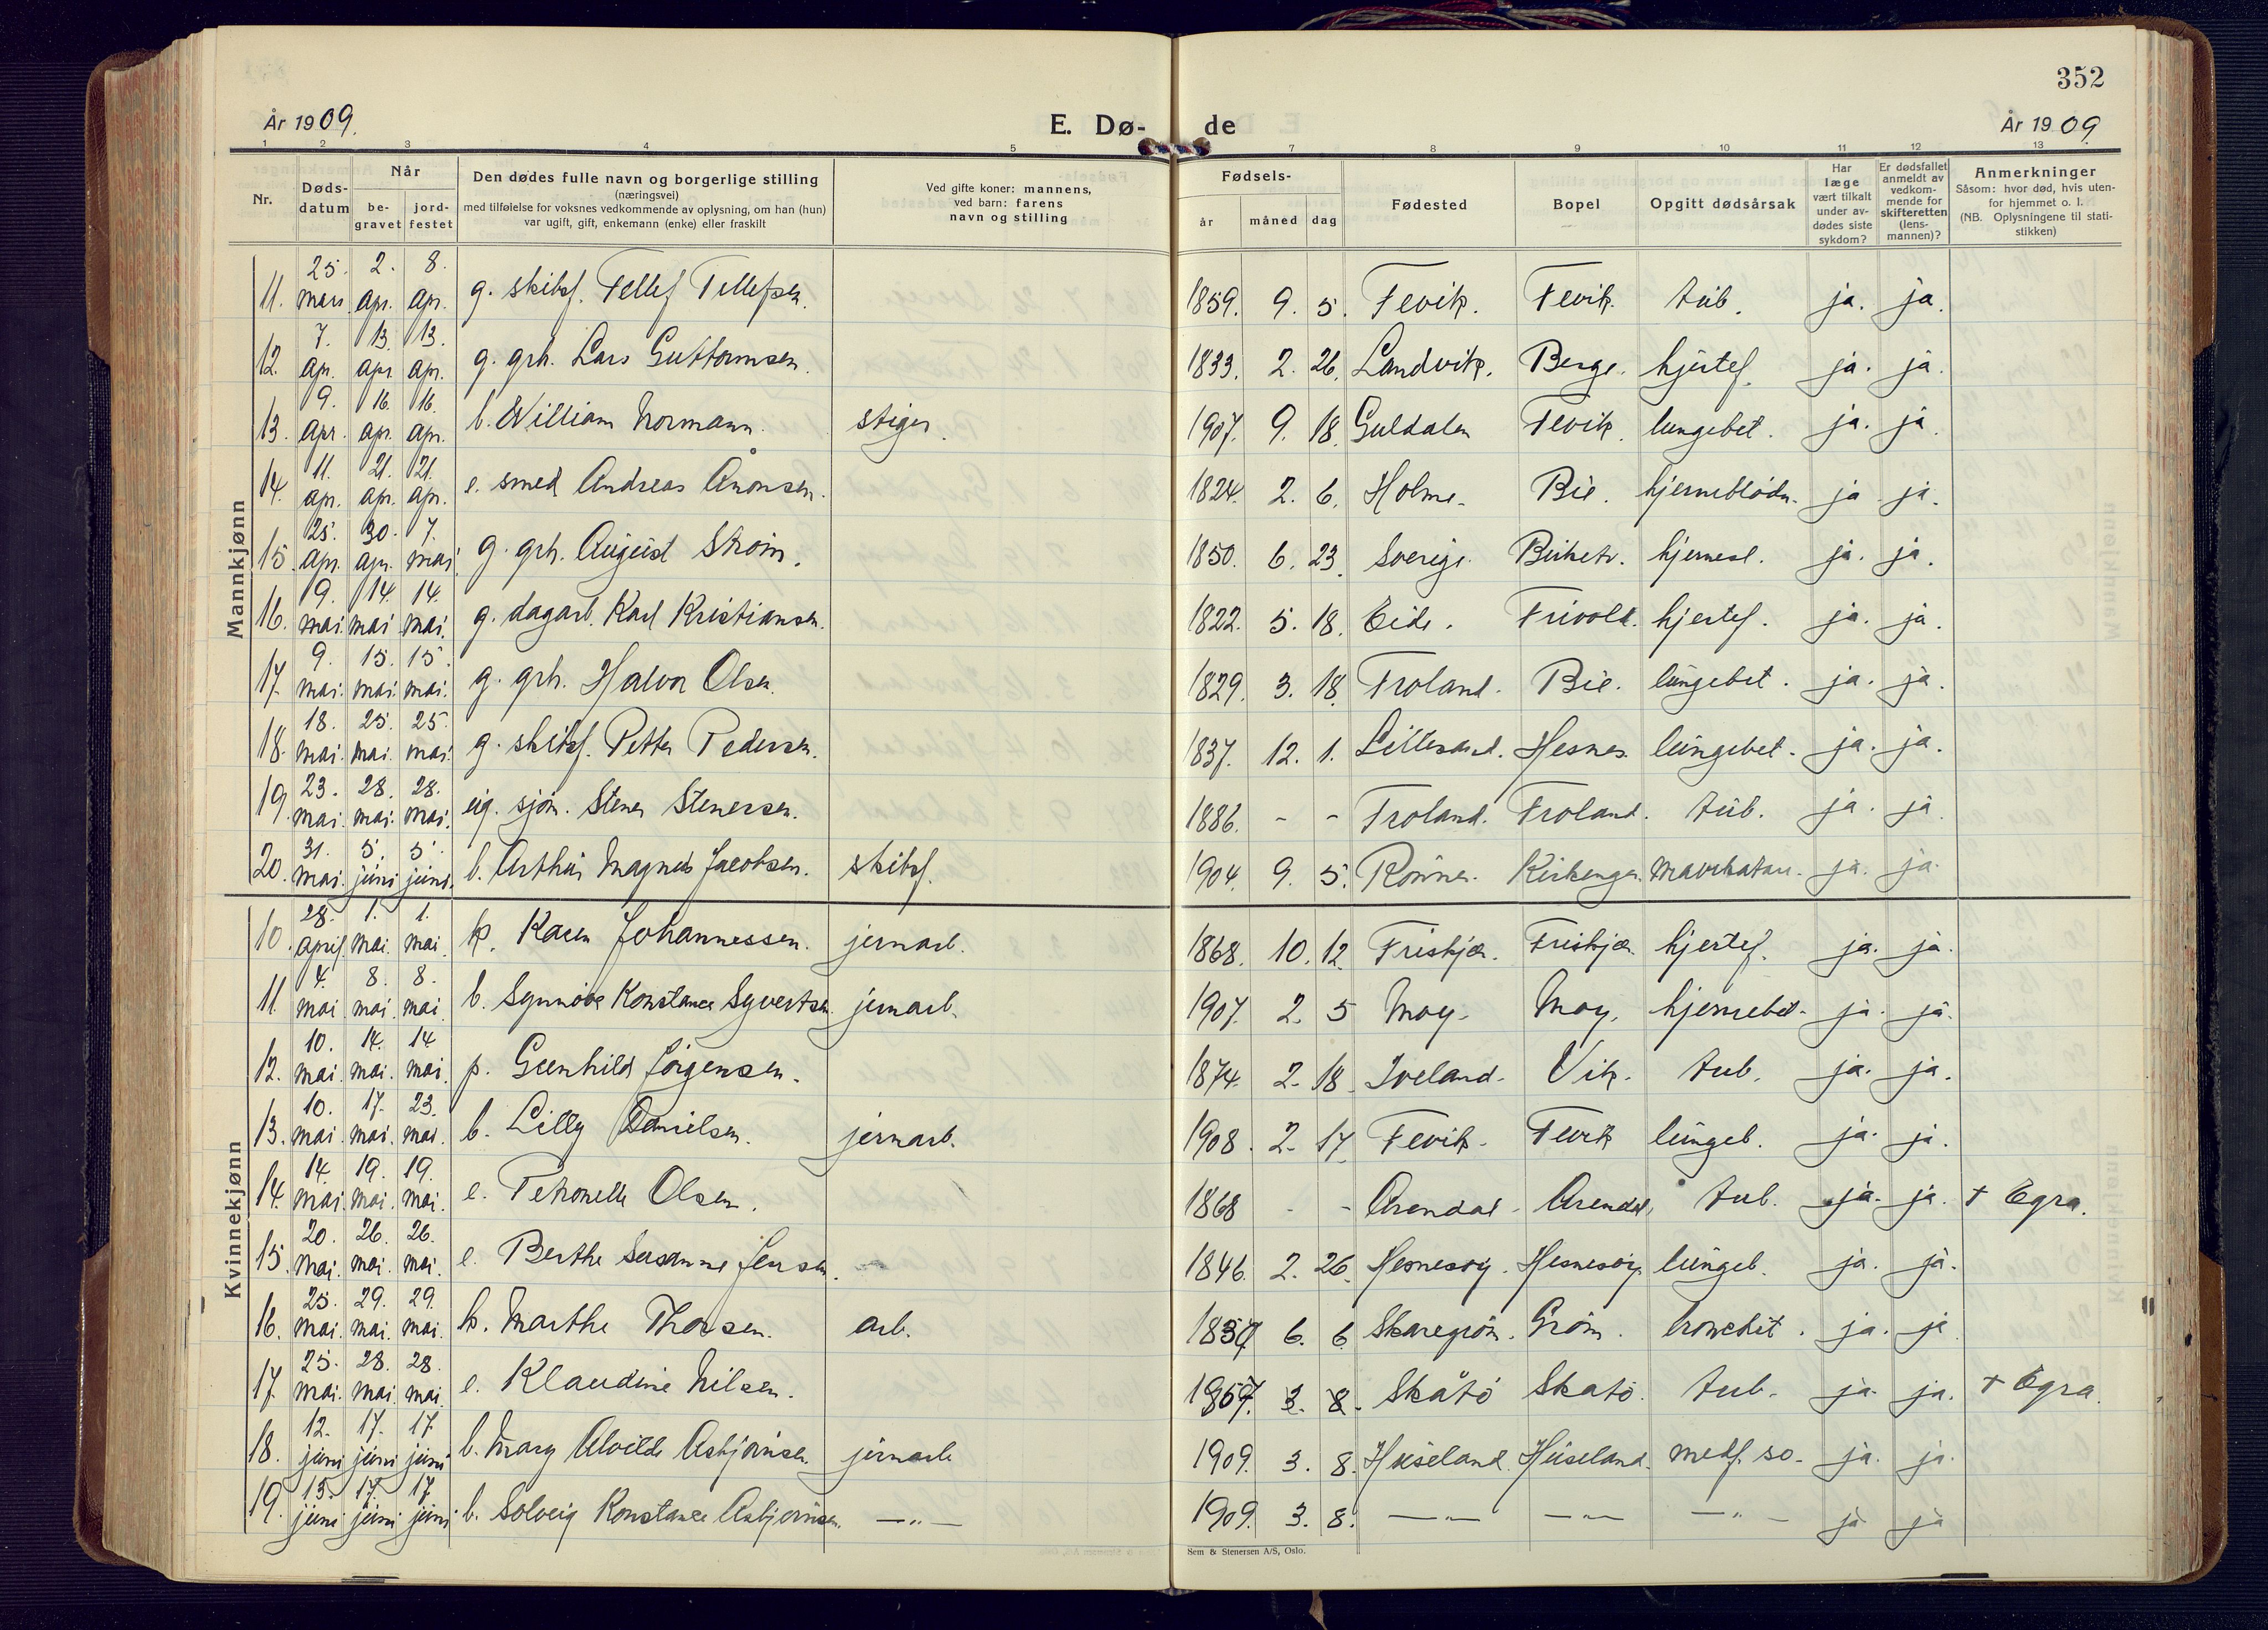 352
År 1909.
E. Dø-
de
År 1909.
1 2 3 4 5
7 8 9 10 11 12 13
Nr.
Døds-
datum
Når
be-
gravet
jord-
festet
Den dødes fulle navn og borgerlige stilling
(næringsvei)
med tilføielse for voksnes vedkommende av oplysning, om han (hun)
var ugift, gift, enkemann (enke) eller fraskilt
Ved gifte koner: mannens,
ved barn: farens
navn og stilling
Fødsels-
år
måned
dag
Fødested
Bopel
Opgitt dødsårsak
Har
læge
vært tilkalt
under av-
dødes siste
sykdom?
Er dødsfallet
anmeldt av
vedkom-
mende for
skifteretten
(lens-
mannen)?
Anmerkninger
Såsom: hvor død, hvis uten-
for hjemmet o. l.
(NB. Oplysningene til stati-
stikken)
Mannkjønn
11. 25. mars 2. apr. 8. apr. g. skibsf. Tellef Tellefsen. 1859. 9. 5. Fevik. Fevik. tub. ja. ja.
12. 7. apr. 13. apr. 13. apr. g. grh. Lars Guttormsen. 1833. 2. 26. Landvik. Berge. hjertef. ja. ja.
13. 9. apr. 16. apr. 16. apr. b. William Normann. stiger. 1907. 9. 18. Guldalen Fevik. lungebet. ja. ja.
14. 11. apr. 21. apr. 21. apr. e. smed Andreas Ånonsen. 1824. 2. 6. Holme. Bie. hjerneblødn. ja ja.
15. 25. apr. 30. apr. 7. mai. g. grh. August Strøm. 1850. 6. 23. Sverige. hjernesl. ja. ja.
16. 9. mai. 14. mai 14. mai. g. dagarb. Karl Kristiansen. 1822. 5. 18. Eide. Frivold. hjertef. ja. ja.
17. 9. mai. 15. mai. 15. mai. g. grh. Halvor Olsen. 1829. 3. 18. Froland. Bie. lungebet. ja. ja.
18. 18. mai. 25. mai. 25. mai. g. skibsf. Petter Pedersen. 1837. 12. 1. Lillesand. Hesnes. lungebet. ja. ja.
19. 23. mai. 28. mai. 28. mai. ug. sjøm. Stener Stenersen. 1886. - - Froland. Froland. tub. ja. ja
20. 31. mai. 5. juni 5. juni. b. Arthur Magnus Jacobsen. skibsf. 1904. 9. 5. Rønnes. Kirkengen. mavekatarr. ja. ja.
Kvinnekjønn
10. 28. april. 1. mai. 1. mai. k. Karen Johannessen. jernarb. 1868. 10. 12. Triskjær. Triskjær. hjertef. ja. ja.
11. 4. mai 8. mai. 8. mai. b. Synnøve Konstance Syvertsen. jernarb. 1907. 2. 5 Moy. Moy. hjernebet. ja. ja.
12. 10. mai. 14. mai. 14 mai. p. Gunhild Jørgensen. 1874. 2. 18. Iveland. Vik. tub. ja. ja.
13. 10. mai. 17. mai. 23. mai. b. Lilly Danielsen. jernarb. 1908. 2. 17. Fevik. Fevik lungeb. ja. ja.
14. 14. mai. 19. mai. 19. mai. e. Petronelle Olsen. 1868 - - Arendal. Arendal. tub. ja. ja. + Egra.
15. 20. mai. 26. mai. 26. mai. e. Berthe Susanne Jensen. 1846. 2. 26. Hesnesøy. Hesnesøy. lungeb. ja. ja.
16. 25. mai. 29. mai. 29. mai. k. Marthe Thorsen. arb. 6. 6 Skaregrøm. Grøm. bronchit. ja. ja
17. 25. mai. 28. mai 28. mai e. Klaudine Nilsen. 3. 8. Skåtø Skatø. tub. ja. ja. + Egra.
18. 12. juni 17. juni 17. juni b. Mary Alvilde Asbjørnsen. jernarb 1909. 3. 8. Huseland. Huseland. medf. sv. ja. ja.
19. 13. juni 17. juni 17. juni b. Solveig Konstance Asbjørnsen. —"— 1909. 3. 8. —"— —"— —"— ja ja
Sem & Stenersen A/S, Oslo.